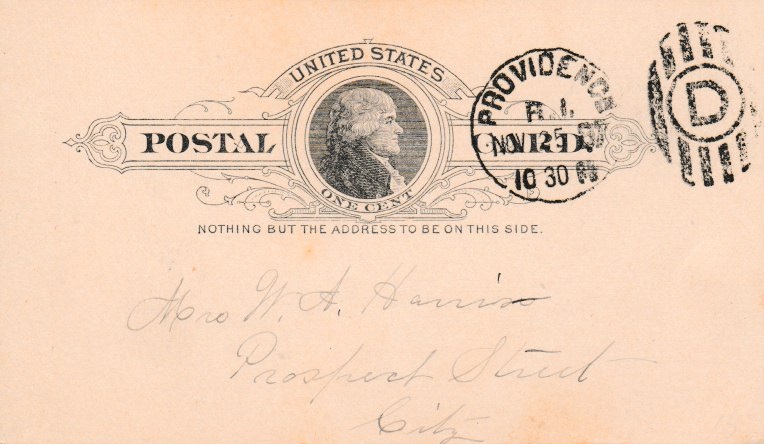 UNITED STATES
POSTAL CARD.
ONE CENT
NOTHING BUT THE ADDRESS TO BE ON THIS SIDE.
PROVIDENCE
R.I.
NOV 25
10 30
D
Mrs W. A. Harris
Prospect Street
City